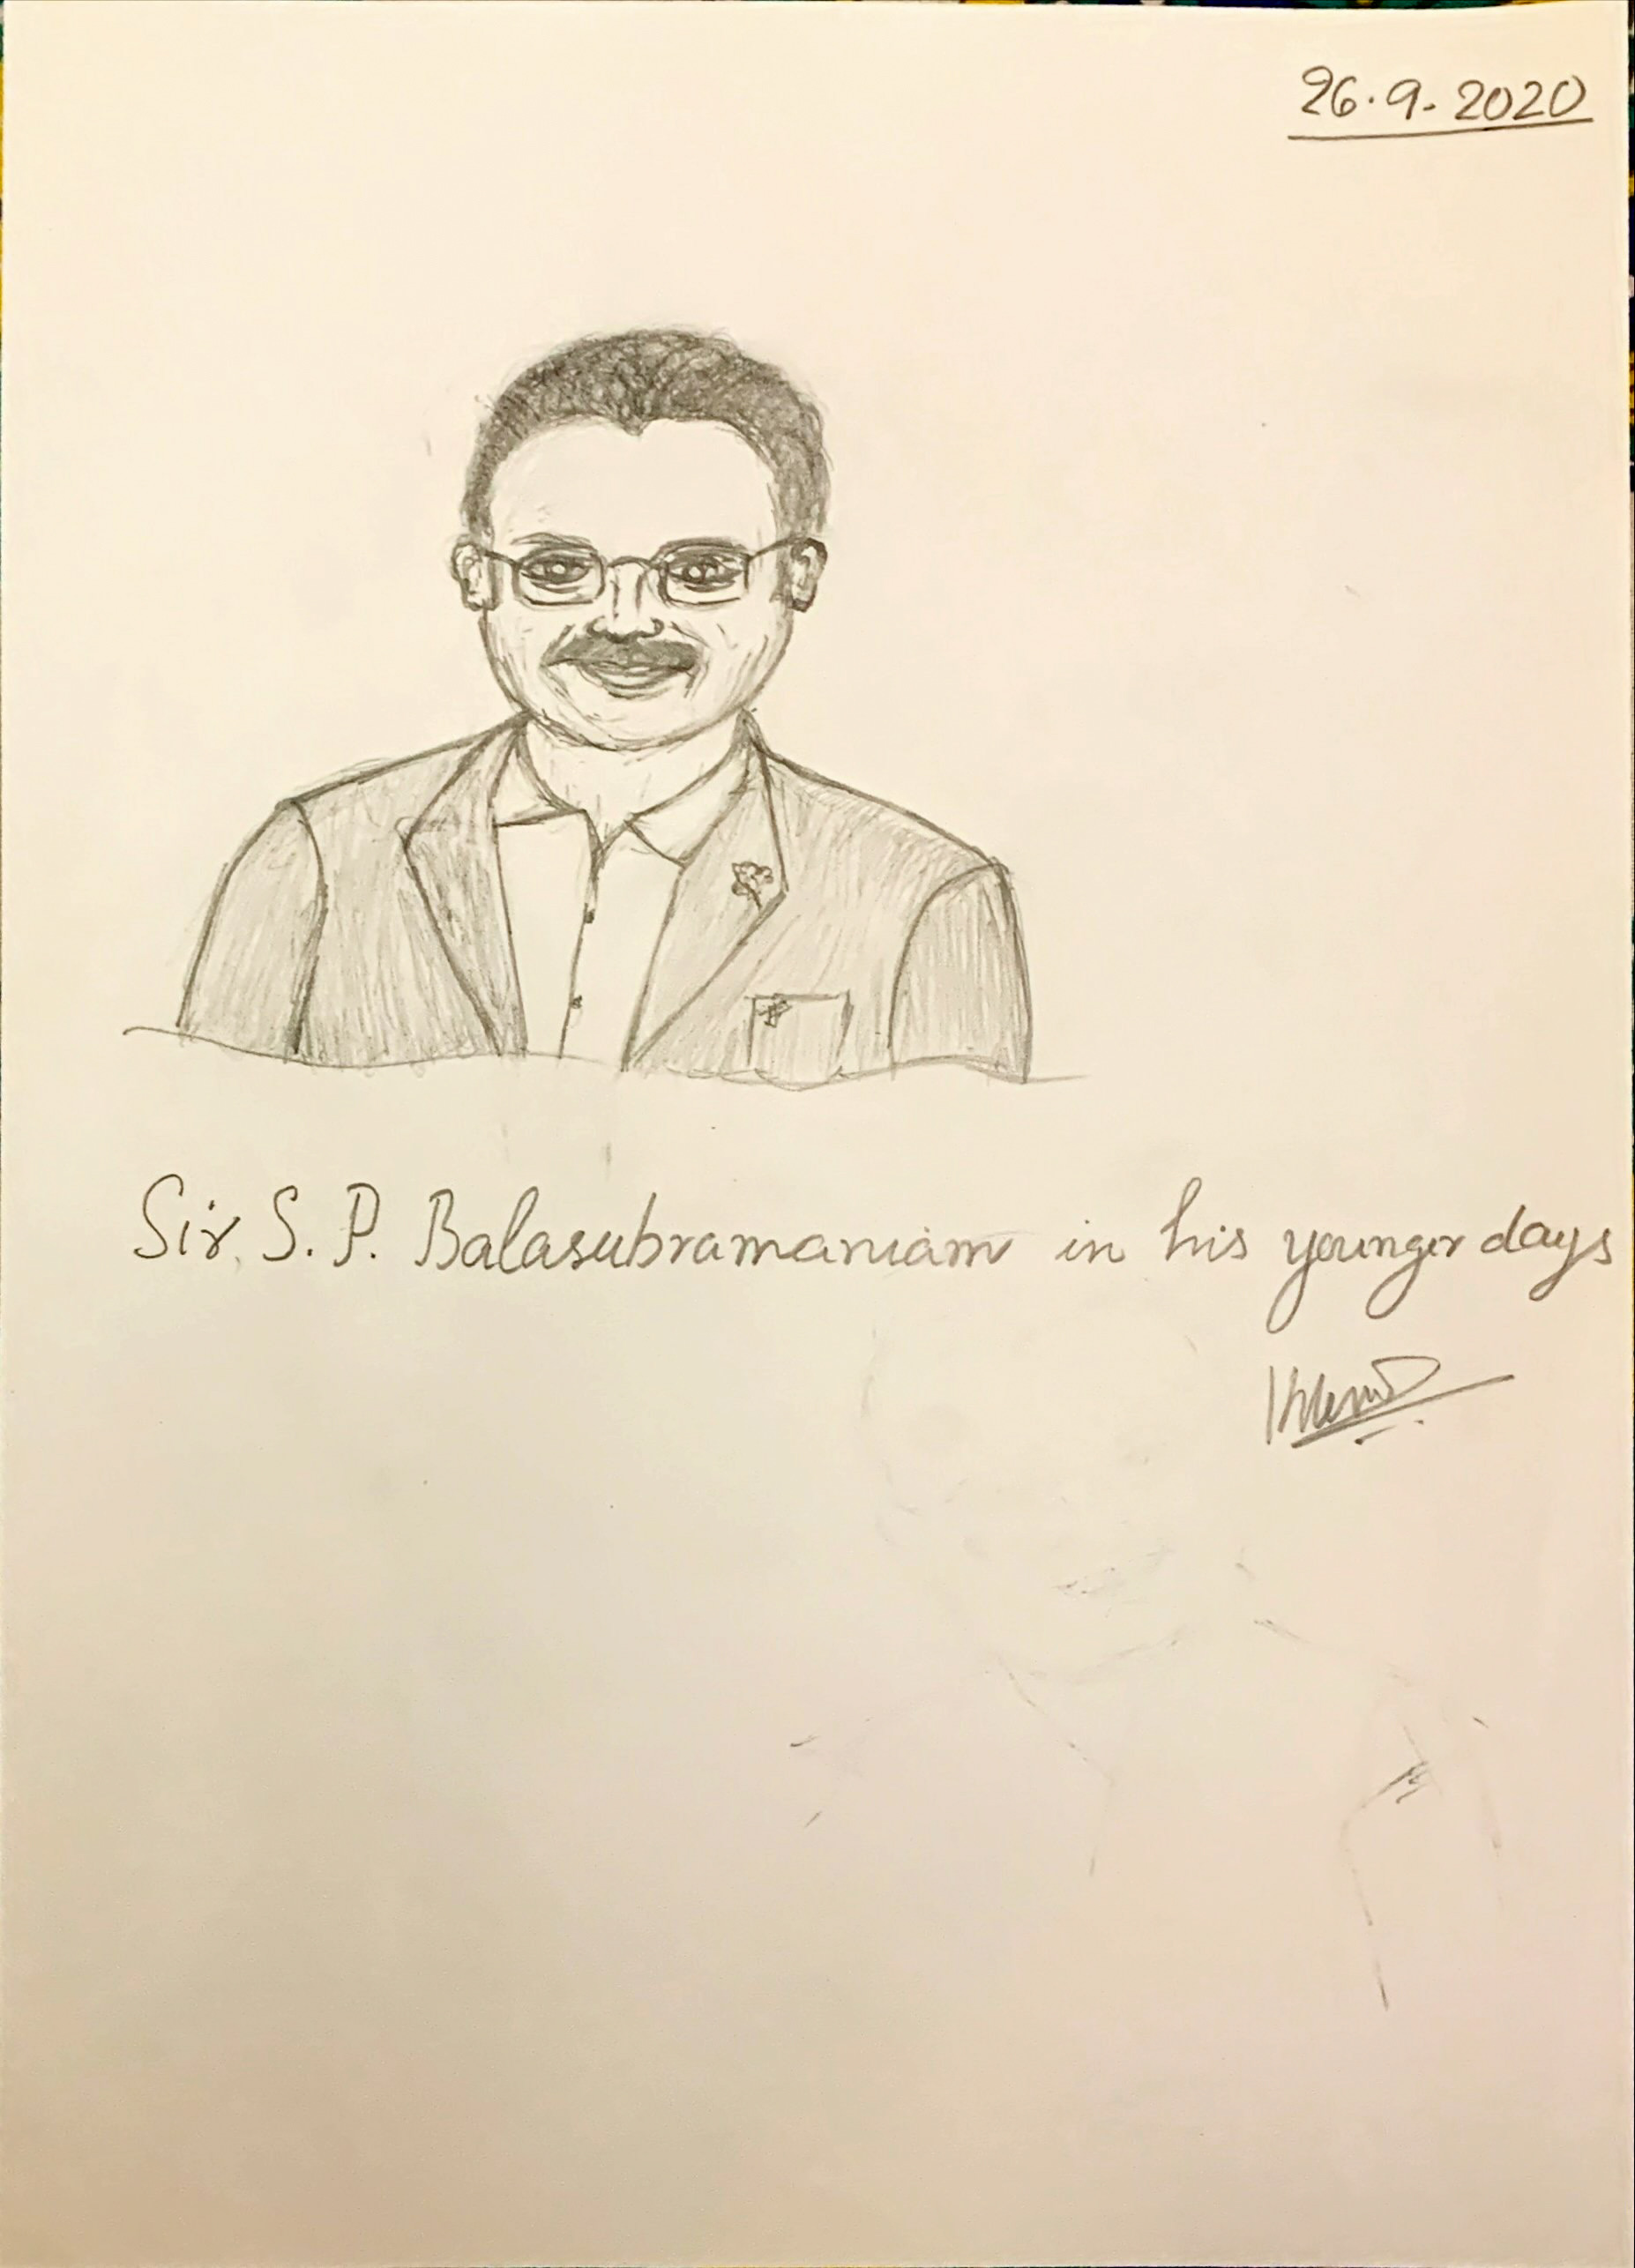 26.9.2020
Sir. S. P. Balasubramaniam in his younger days